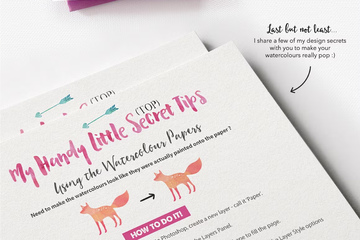 Last but not least...
I share a few of my design secrets
with you to make your
watercolours really pop :)
(TOP)
(TOP)
My Handy Little Secret Tips
Using the Watercolour Papers
Need to make the watercolours look like they were actually painted onto the paper?
HOW TO DO IT!
Photoshop, create a new layer - call it 'Paper'.
the Layers Panel.
one to fill the page.
Layer Style options